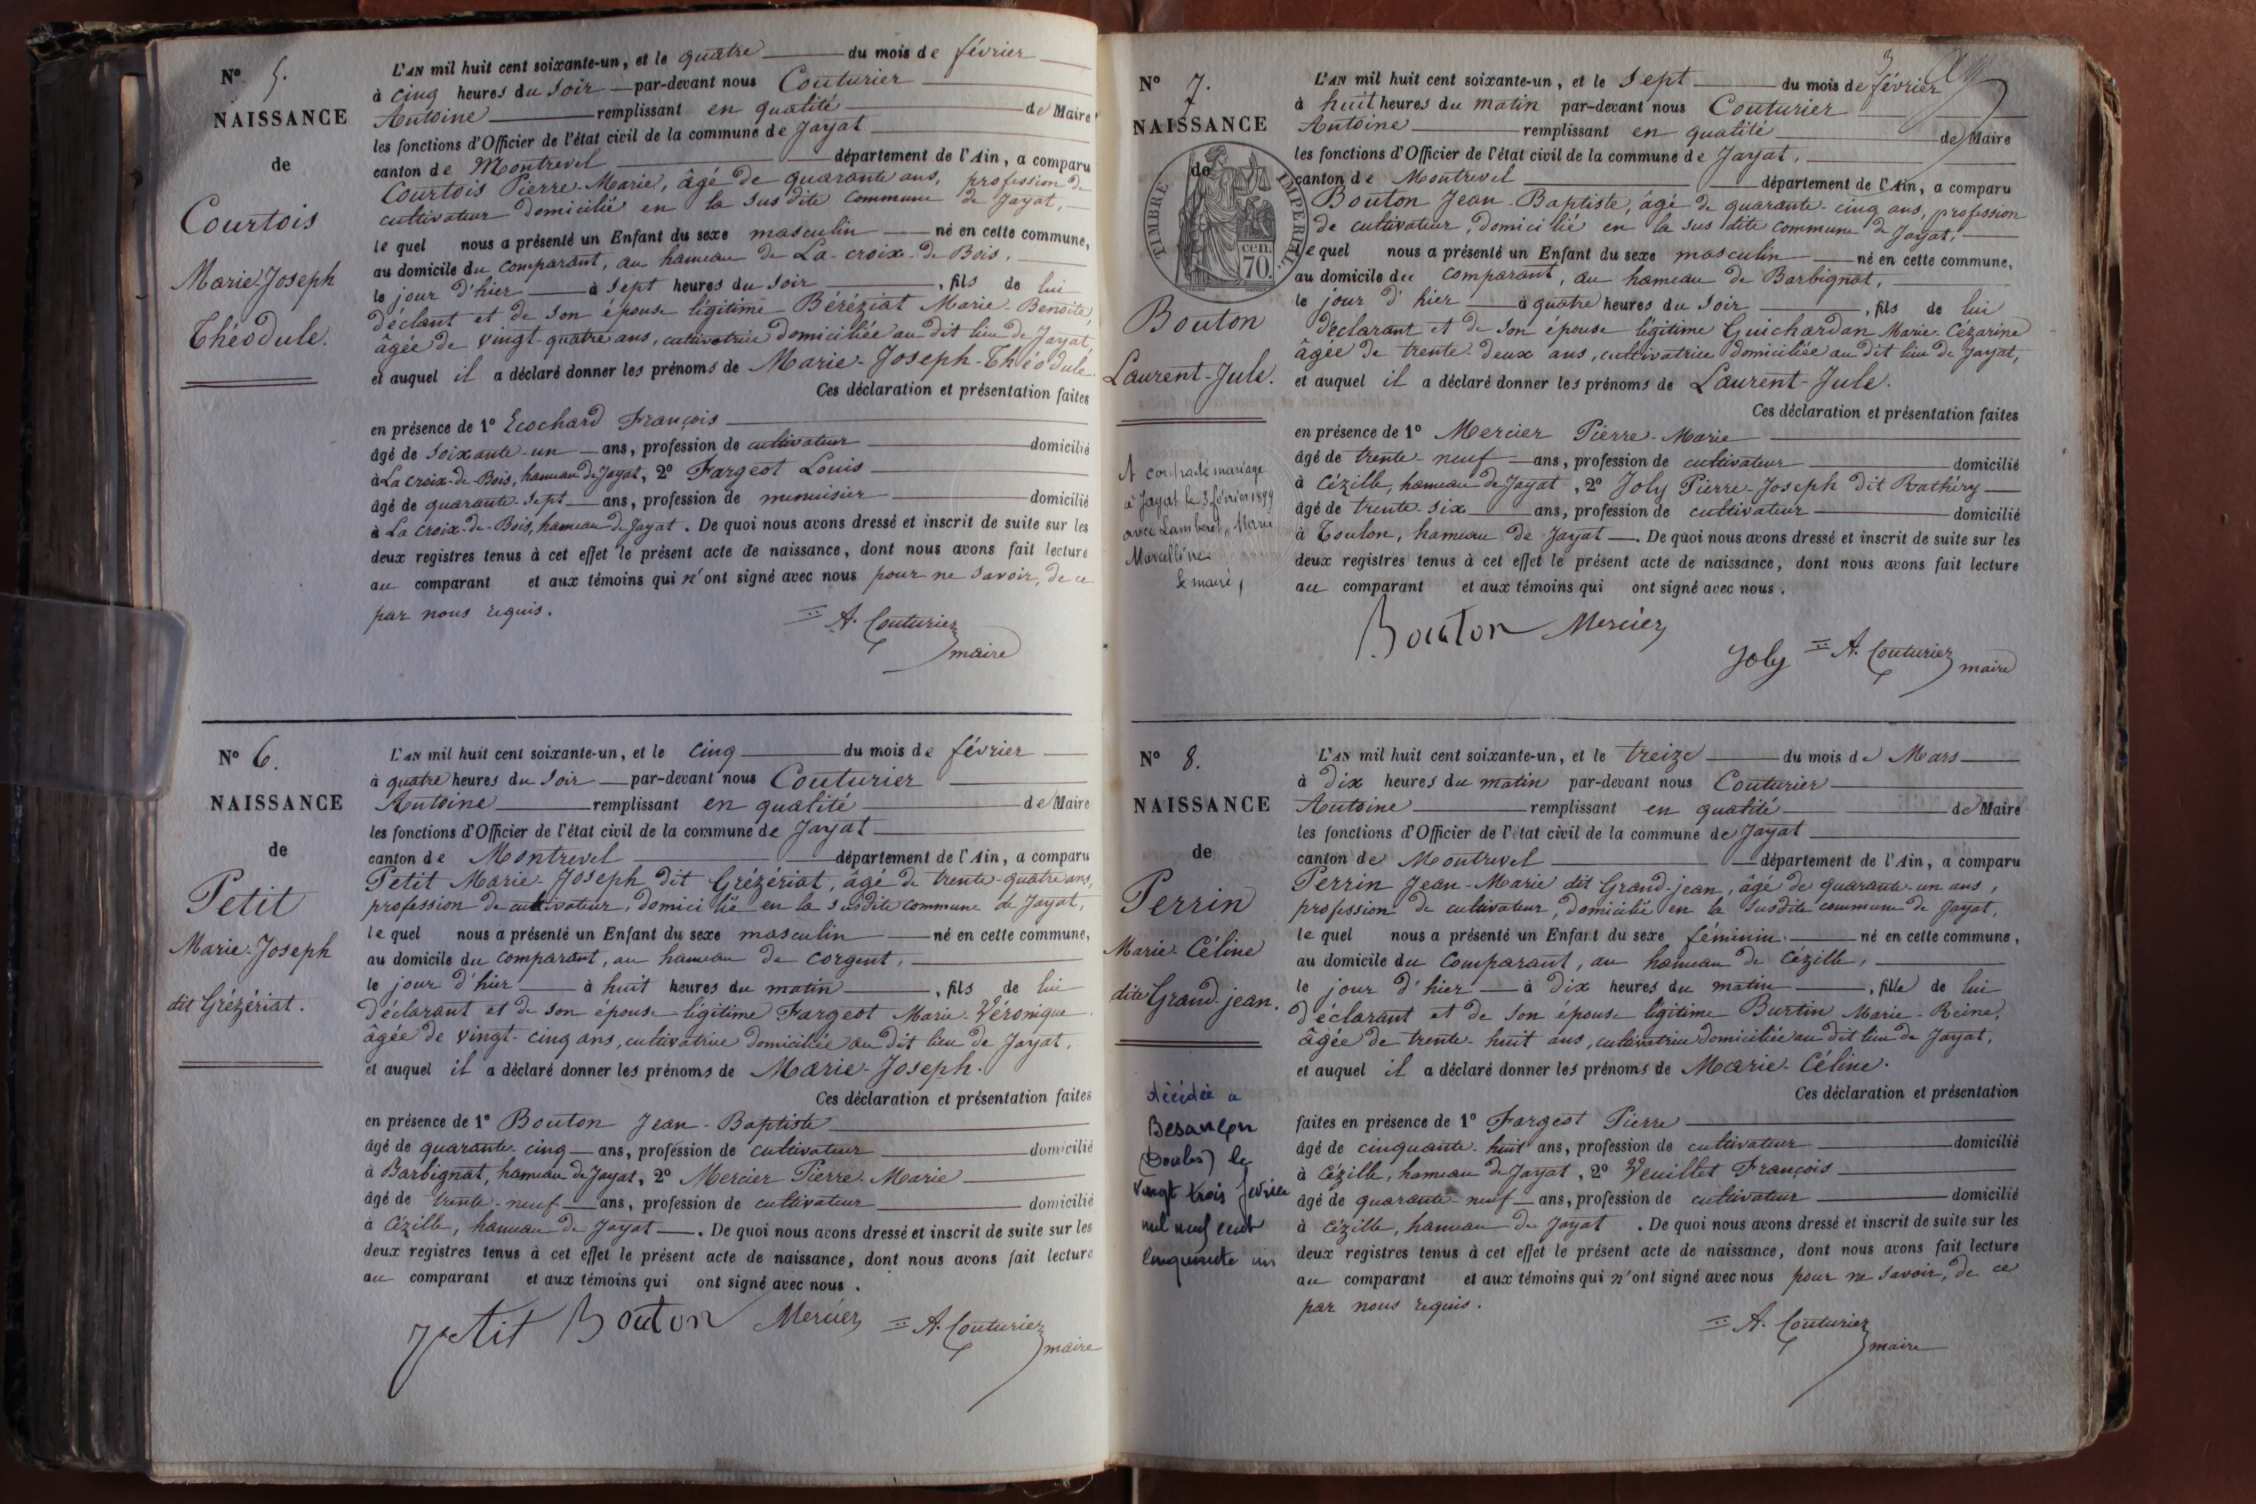 N° 5.
NAISSANCE
de
Courtois
Marie-Joseph
Théodule.
L'AN mil huit cent soixante-un, et le quatre du mois de février
à cinq heures du soir par-devant nous Couturier
Antoine remplissant en qualité de Maire
les fonctions d'Officier de l'état civil de la commune de Jayat
canton de Montrevel département de l'Ain, a comparu
Courtois Pierre-Marie, âgé de quarante ans, profession de
cultivateur domicilié en la susdite commune de Jayat,
le quel nous a présenté un Enfant du sexe masculin né en cette commune,
au domicile du comparant, au hameau de La-croix-de Bois,
le jour d'hier à sept heures du soir, fils de lui
déclant et de son épouse légitime Béréziat Marie-Benoite,
âgée de vingt-quatre ans, cultivatrice domiciliée au dit lieu de Jayat,
et auquel il a déclaré donner les prénoms de Marie-Joseph-Théodule.
Ces déclaration et présentation faites
en présence de 1° Ecochard François
âgé de soixante-un ans, profession de cultivateur domicilié
à La croix-de-Bois, hameau de Jayat, 2° Fargeot Louis
âgé de quarante-sept ans, profession de menuisier domicilié
à La croix-de-Bois, hameau de Jayat. De quoi nous avons dressé et inscrit de suite sur les
deux registres tenus à cet effet le présent acte de naissance, dont nous avons fait lecture
au comparant et aux témoins qui n'ont signé avec nous pour ne savoir, de ce
par nous requis.
A. Couturier
maire
N° 6.
NAISSANCE
de
Petit
Marie-Joseph
dit Grézériat.
L'AN mil huit cent soixante-un, et le cinq du mois de février
à quatre heures du soir par-devant nous Couturier
Antoine remplissant en qualité de Maire
les fonctions d'Officier de l'état civil de la commune de Jayat
canton de Montrevel département de l'Ain, a comparu
Petit Marie-Joseph dit Grézériat, âgé de trente-quatre ans,
profession de cultivateur, domicilié en la susdite commune de Jayat,
le quel nous a présenté un Enfant du sexe masculin né en cette commune,
au domicile du comparant, au hameau de Corgent,
le jour d'hier à huit heures du matin, fils de lui
déclarant et de son épouse légitime Fargeot Marie-Véronique
âgée de vingt-cinq ans, cultivatrice domiciliée au dit lieu de Jayat,
et auquel il a déclaré donner les prénoms de Marie-Joseph.
Ces déclaration et présentation faites
en présence de 1° Bouton Jean-Baptiste
âgé de quarante-cinq ans, profession de cultivateur domicilié
à Barbignat, hameau de Jayat, 2° Mercier Pierre-Marie
âgé de trente-neuf ans, profession de cultivateur domicilié
à Cézille, hameau de Jayat. De quoi nous avons dressé et inscrit de suite sur les
deux registres tenus à cet effet le présent acte de naissance, dont nous avons fait lecture
au comparant et aux témoins qui ont signé avec nous.
Petit Bouton Mercier A. Couturier
maire
3
N° 7.
NAISSANCE
de
TIMBRE IMPERIAL
cen.
70.
Bouton
Laurent-Jule.
A contracté mariage
à Jayat le 3 février 1899
avec Lamberet, Marie
Marcelline
le maire,
L'AN mil huit cent soixante-un, et le sept du mois de février
à huit heures du matin par-devant nous Couturier
Antoine remplissant en qualité de Maire
les fonctions d'Officier de l'état civil de la commune de Jayat,
canton de Montrevel département de l'Ain, a comparu
Bouton Jean-Baptiste, âgé de quarante-cinq ans, profession
de cultivateur, domicilié en la susdite commune de Jayat,
le quel nous a présenté un Enfant du sexe masculin né en cette commune,
au domicile du comparant, au hameau de Barbignat,
le jour d'hier à quatre heures du soir, fils de lui
déclarant et de son épouse légitime Guichardan Marie-Cézarine
âgée de trente-deux ans, cultivatrice domiciliée au dit lieu de Jayat,
et auquel il a déclaré donner les prénoms de Laurent-Jule.
Ces déclaration et présentation faites
en présence de 1° Mercier Pierre-Marie
âgé de trente-neuf ans, profession de cultivateur domicilié
à Cézille, hameau de Jayat, 2° Joly Pierre-Joseph dit Rathéry
âgé de trente-six ans, profession de cultivateur domicilié
à Toulon, hameau de Jayat. De quoi nous avons dressé et inscrit de suite sur les
deux registres tenus à cet effet le présent acte de naissance, dont nous avons fait lecture
au comparant et aux témoins qui ont signé avec nous.
Bouton Mercier
Joly A. Couturier
maire
N° 8.
NAISSANCE
de
Perrin
Marie-Céline
dite Grand-jean.
décédée a
Besançon
(Doubs) le
vingt trois fevrier
mil neuf cent
cinquante un
L'AN mil huit cent soixante-un, et le treize du mois de Mars
à dix heures du matin par-devant nous Couturier
Antoine remplissant en qualité de Maire
les fonctions d'Officier de l'état civil de la commune de Jayat
canton de Montrevel département de l'Ain, a comparu
Perrin Jean-Marie dit Grand-jean, âgé de quarante-un ans,
profession de cultivateur, domicilié en la susdite commune de Jayat,
le quel nous a présenté un Enfant du sexe féminin né en cette commune,
au domicile du comparant, au hameau de Cézille,
le jour d'hier à dix heures du matin, fille de lui
déclarant et de son épouse légitime Burtin Marie-Reine,
âgée de trente-huit ans, cultivatrice domiciliée au dit lieu de Jayat,
et auquel il a déclaré donner les prénoms de Marie-Céline.
Ces déclaration et présentation
faites en présence de 1° Fargeot Pierre
âgé de cinquante-huit ans, profession de cultivateur domicilié
à Cézille, hameau de Jayat, 2° Veuillet François
âgé de quarante-neuf ans, profession de cultivateur domicilié
à Cézille, hameau de Jayat. De quoi nous avons dressé et inscrit de suite sur les
deux registres tenus à cet effet le présent acte de naissance, dont nous avons fait lecture
au comparant et aux témoins qui n'ont signé avec nous pour ne savoir, de ce
par nous requis.
A. Couturier
maire